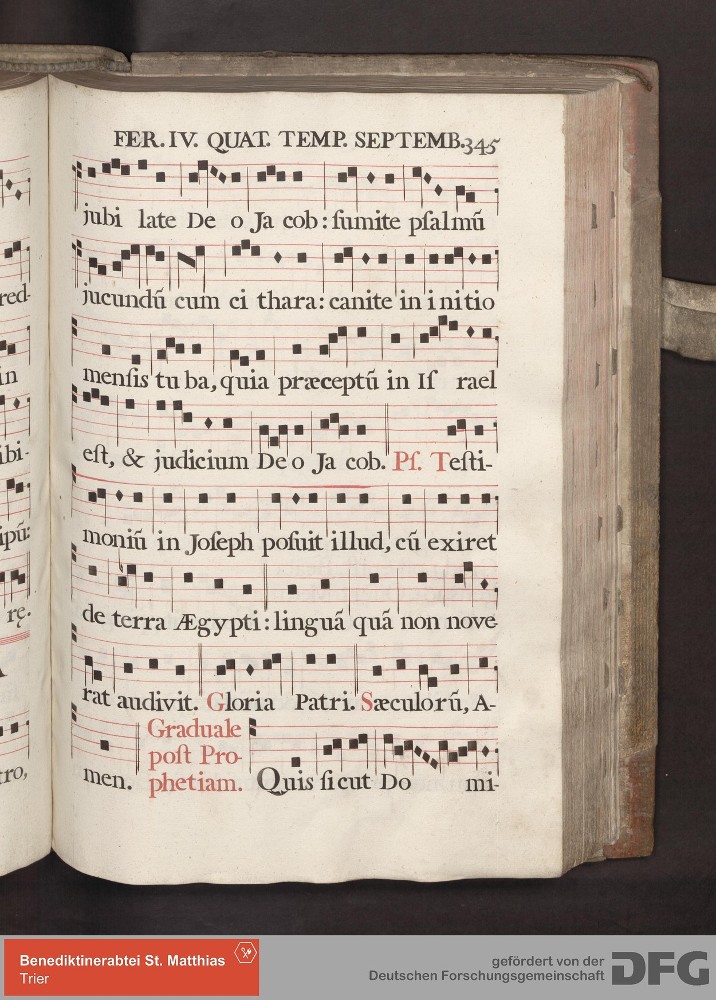 FER. IV. QUAT. TEMP. SEPTEMB. 345
jubi late De o Ja cob: ſumite pſalmũ
jucundũ cum ci thara: canite in i nitio
menſis tu ba, quia præceptũ in Iſ rael
eſt, & judicium De o Ja cob. Pſ. Teſti-
moniũ in Joſeph poſuit illud, cũ exiret
de terra Ægypti: linguã quã non nove
rat audivit. Gloria Patri. Sæculorũ, A-
men. Graduale
poſt Pro-
phetiam. Quis ſicut Do mi-
red-
in
ibi-
ipũ:
rę.
tro,
Benediktinerabtei St. Matthias
Trier
gefördert von der
Deutschen Forschungsgemeinschaft DFG